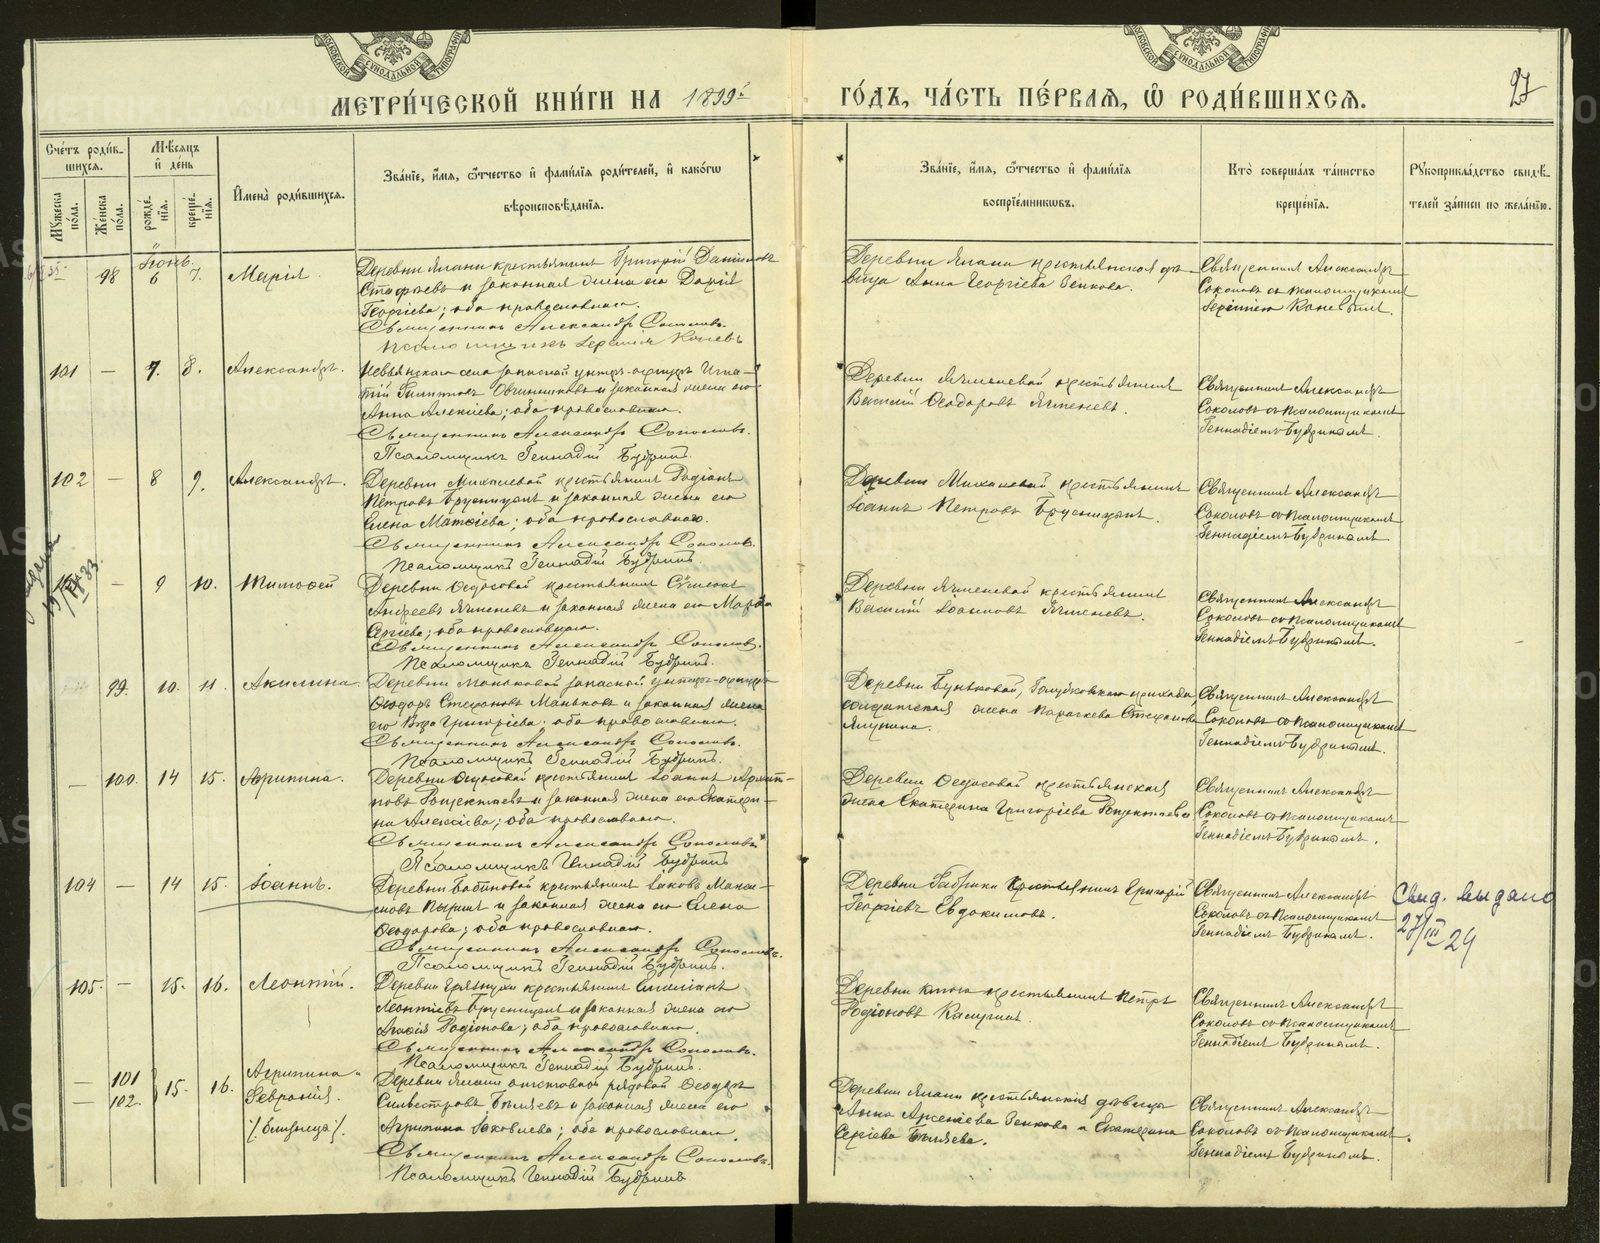 МОСКОВСКОЙ СУНОДАЛЬНОЙ ТИПОГРАФІИ
МОСКОВСКОЙ СУНОДАЛЬНОЙ ТИПОГРАФІИ
МЕТРИ́ЧЕСКОЙ КНИ́ГИ НА 1899 ГО́ДЪ, ЧА́СТЬ ПЕ́РВАЯ, Ѡ҆ РОДИ́ВШИХСЯ.
27
Сче́тъ роди́в-
шихся.
Мѣ́сяцъ
и҆ де́нь
Му́жеска по́ла.
Же́нска по́ла.
рожде́-
нїя.
креще́-
нїя.
И҆мена̀ роди́вшихся.
Зва́нїе, и҆́мя, ѻ҆́тчество и҆ фами́лїя роди́телей, и҆ како́гѡ
вѣроисповѣ́данїя.
Зва́нїе, и҆́мя, ѻ҆́тчество и҆ фами́лїя
воспрїе́мниковъ.
Кто̀ соверша́лъ та́инство
креще́нїя.
Рꙋкоприкла́дство свидѣ́-
телей за́писи по жела́нїю.
Іюнь.
98 6 7. Марія
Деревни Ялани крестьянинъ Григорій Даниловъ
и законная жена его Дарія
Георгіева; оба православнаго.
Священникъ Александръ Соколовъ.
Псаломщикъ
Деревни Ялани крестьянская дѣ-
вица Анна Георгіева Зенкова.
Священникъ Александръ
Соколовъ съ псаломщикомъ
101 — 7. 8. Александръ.
Невьянскаго села запасной унтеръ-офицеръ Игна-
тій Филипповъ Овчинниковъ и законная жена его
Анна Алексіева; оба православнаго.
Священникъ Александръ Соколовъ.
Псаломщикъ Геннадій Будринъ.
Деревни Ячменевой крестьянинъ
Василій Ѳеодоровъ Ячменевъ.
Священникъ Александръ
Соколовъ съ псаломщикомъ
Геннадіемъ Будринымъ.
102 — 8 9. Александръ.
Деревни Михалевой крестьянинъ Родіонъ
Петровъ Брусницынъ и законная жена его
Елена Матѳіева; оба православнаго.
Священникъ Александръ Соколовъ.
Псаломщикъ Геннадій Будринъ.
Деревни Михалевой крестьянинъ
Іоаннъ Петровъ Брусницынъ.
Священникъ Александръ
Соколовъ съ псаломщикомъ
Геннадіемъ Будринымъ.
— 9 10. Тимоѳей
Деревни Ѳедосовой крестьянинъ Сѵмеонъ
Андреевъ Ячменевъ и законная жена его Марѳа
Сергіева; оба православнаго.
Священникъ Александръ Соколовъ.
Псаломщикъ Геннадій Будринъ.
Деревни Ячменевой крестьянинъ
Василій Іоанновъ Ячменевъ.
Священникъ Александръ
Соколовъ съ псаломщикомъ
Геннадіемъ Будринымъ.
99. 10. 11. Акилина.
Деревни Маньковой запасной унтеръ-офицеръ
Ѳеодоръ Стефановъ Маньковъ и законная жена
его Вѣра Григоріева; оба православнаго.
Священникъ Александръ Соколовъ.
Псаломщикъ Геннадій Будринъ.
Деревни Буньковой, Голубковскаго прихода,
солдатская жена Параскева Стефанова
Священникъ Александръ
Соколовъ съ псаломщикомъ
Геннадіемъ Будринымъ.
— 100. 14 15. Агрипина.
Деревни Ѳедосовой крестьянинъ Іоаннъ
и законная жена его Екатери-
на Алексіева; оба православнаго.
Священникъ Александръ Соколовъ
Псаломщикъ Геннадій Будринъ
Деревни Ѳедосовой крестьянская
жена Екатерина Григоріева
Священникъ Александръ
Соколовъ съ псаломщикомъ
Геннадіемъ Будринымъ.
104 — 14 15. Іоаннъ.
Деревни Бобиновой крестьянинъ Іаковъ Макси-
мовъ и законная жена его Елена
Ѳеодорова; оба православнаго.
Священникъ Александръ Соколовъ.
Псаломщикъ Геннадій Будринъ.
Деревни Фабрики крестьянинъ Григорій
Георгіевъ Евдокимовъ.
Священникъ Александръ
Соколовъ съ псаломщикомъ
Геннадіемъ Будринымъ.
Свид. выдано
27/III 29
105. — 15. 16. Леонтій.
Деревни Грязнухи крестьянинъ
Леонтіевъ Брусницынъ и законная жена его
Агаѳія Родіонова; оба православнаго.
Священникъ Александръ Соколовъ.
Псаломщикъ Геннадій Будринъ.
Деревни крестьянинъ Петръ
Родіоновъ Калугинъ.
Священникъ Александръ
Соколовъ съ псаломщикомъ
Геннадіемъ Будринымъ.
— 101
— 102. 15. 16. Агрипина
Февронія.
/близнецы/.
Деревни Ялани отставной рядовой Ѳеодоръ
Сильвестровъ Бѣляевъ и законная жена его
Агрипина Іаковлева; оба православнаго.
Священникъ Александръ Соколовъ.
Псаломщикъ Геннадій Будринъ
Деревни Ялани крестьянскія дѣвицы
Анна Арсеніева Зенкова и Екатерина
Сергіева Бѣляева.
Священникъ Александръ
Соколовъ съ псаломщикомъ
Геннадіемъ Будринымъ.